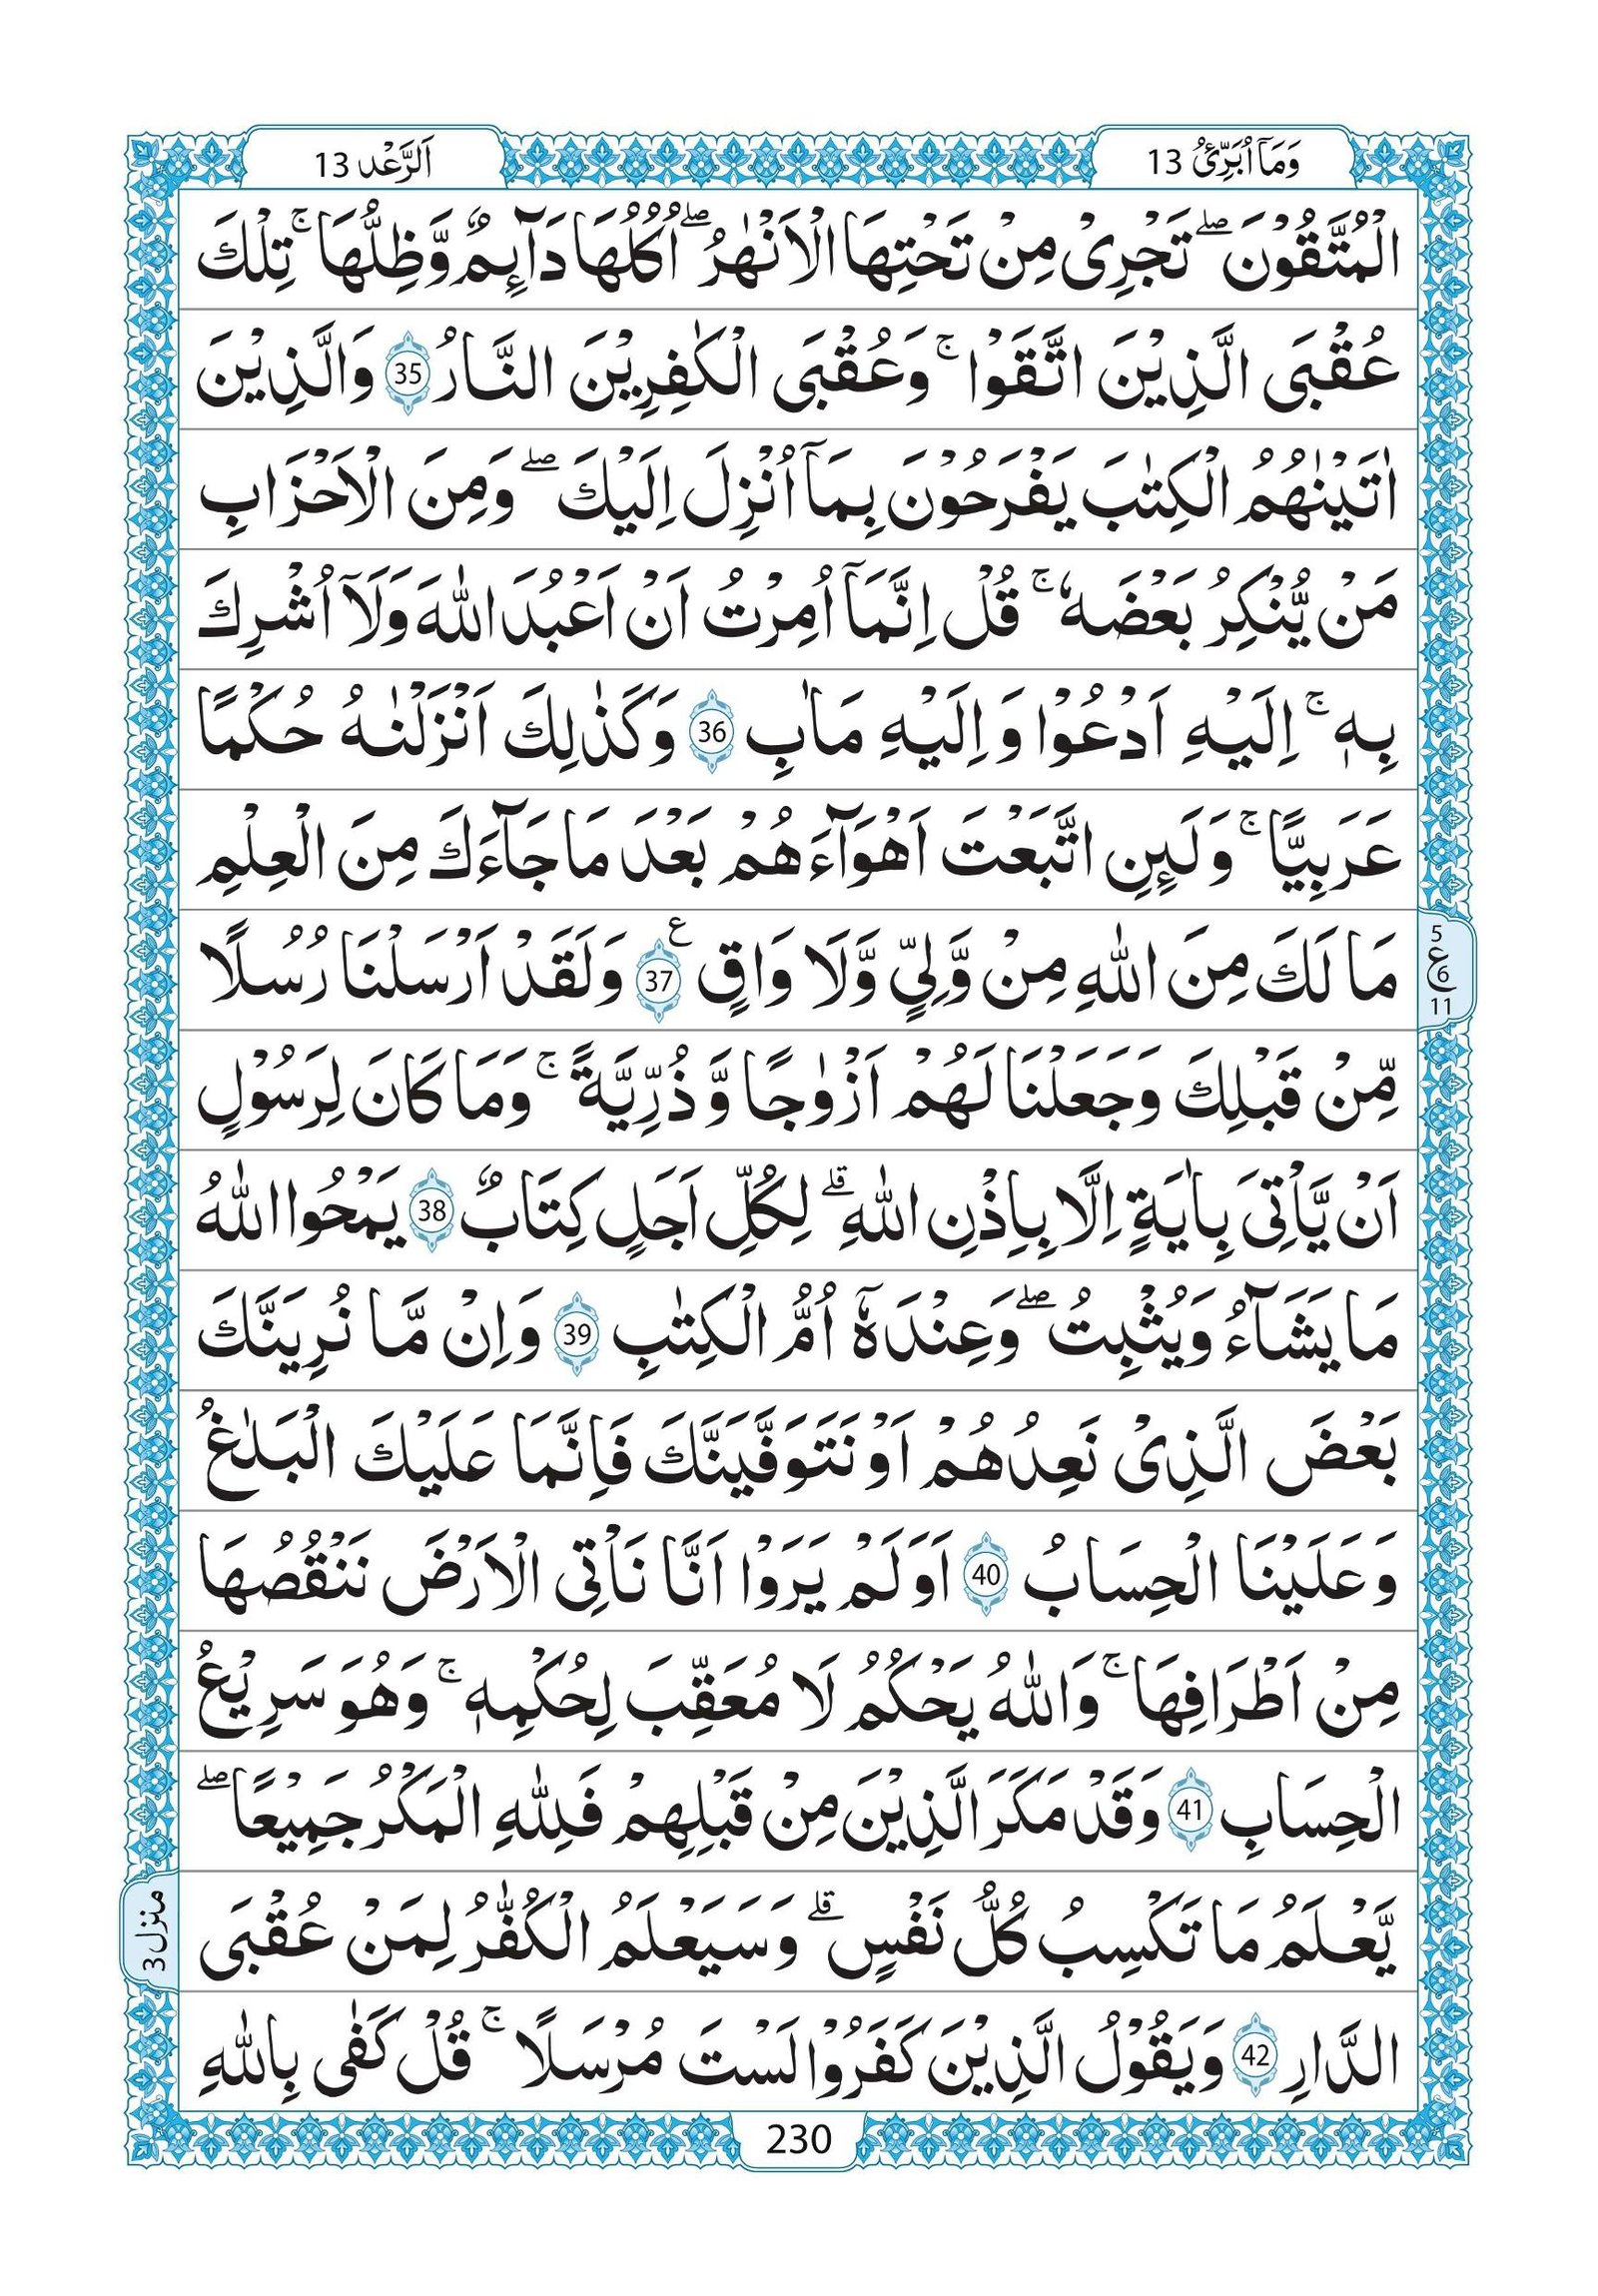 وَمَاۤ اُبَرِّئُ 13
اَلرَّعْد 13
الْمُتَّقُوْنَ ۖ تَجْرِیْ مِنْ تَحْتِهَا الْاَنْهٰرُ ۖ اُكُلُهَا دَآىِٕمٌ وَّظِلُّهَا ۚ تِلْكَ
عُقْبَی الَّذِیْنَ اتَّقَوْا ۚ وَعُقْبَی الْكٰفِرِیْنَ النَّارُ 35 وَالَّذِیْنَ
اٰتَیْنٰهُمُ الْكِتٰبَ یَفْرَحُوْنَ بِمَاۤ اُنْزِلَ اِلَیْكَ ۖ وَمِنَ الْاَحْزَابِ
مَنْ یُّنْكِرُ بَعْضَهٗ ۚ قُلْ اِنَّمَاۤ اُمِرْتُ اَنْ اَعْبُدَ اللّٰهَ وَلَاۤ اُشْرِكَ
بِهٖ ۚ اِلَیْهِ اَدْعُوْا وَ اِلَیْهِ مَاٰبِ 36 وَكَذٰلِكَ اَنْزَلْنٰهُ حُكْمًا
عَرَبِیًّا ۚ وَلَىِٕنِ اتَّبَعْتَ اَهْوَآءَهُمْ بَعْدَ مَا جَآءَكَ مِنَ الْعِلْمِ
مَا لَكَ مِنَ اللّٰهِ مِنْ وَّلِیٍّ وَّلَا وَاقٍ 37 ع وَلَقَدْ اَرْسَلْنَا رُسُلًا
5
ع 6
11
مِّنْ قَبْلِكَ وَجَعَلْنَا لَهُمْ اَزْوٰجًا وَّذُرِّیَّةً ۚ وَمَا كَانَ لِرَسُوْلٍ
اَنْ یَّاْتِیَ بِاٰیَةٍ اِلَّا بِاِذْنِ اللّٰهِ ۗ لِكُلِّ اَجَلٍ كِتَابٌ 38 یَمْحُوا اللّٰهُ
مَا یَشَآءُ وَیُثْبِتُ ۖ وَعِنْدَهٗۤ اُمُّ الْكِتٰبِ 39 وَاِنْ مَّا نُرِیَنَّكَ
بَعْضَ الَّذِیْ نَعِدُهُمْ اَوْ نَتَوَفَّیَنَّكَ فَاِنَّمَا عَلَیْكَ الْبَلٰغُ
وَعَلَیْنَا الْحِسَابُ 40 اَوَلَمْ یَرَوْا اَنَّا نَاْتِی الْاَرْضَ نَنْقُصُهَا
مِنْ اَطْرَافِهَا ۚ وَاللّٰهُ یَحْكُمُ لَا مُعَقِّبَ لِحُكْمِهٖ ۚ وَهُوَ سَرِیْعُ
الْحِسَابِ 41 وَقَدْ مَكَرَ الَّذِیْنَ مِنْ قَبْلِهِمْ فَلِلّٰهِ الْمَكْرُ جَمِیْعًا ۖ
یَّعْلَمُ مَا تَكْسِبُ كُلُّ نَفْسٍ ۗ وَسَیَعْلَمُ الْكُفّٰرُ لِمَنْ عُقْبَی
منزل 3
الدَّارِ 42 وَیَقُوْلُ الَّذِیْنَ كَفَرُوْا لَسْتَ مُرْسَلًا ۚ قُلْ كَفٰی بِاللّٰهِ
230